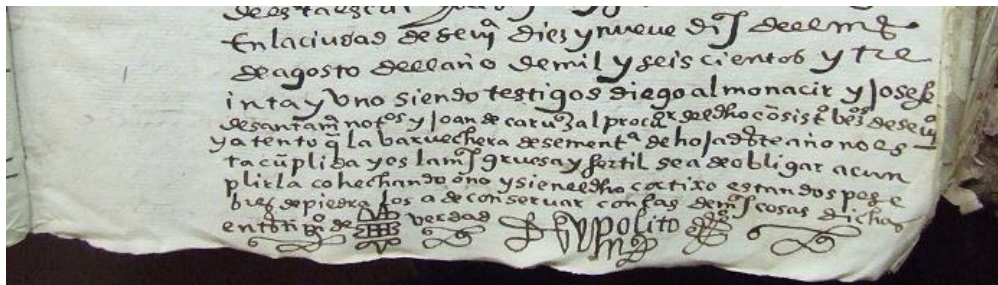 En la ciudad de sevª diez y nueve dīs del mes
de agosto del año de mil y seis cientos y tre
inta y uno siendo testigos diego almonacir y Josefe
de santamª notᵒˢ y Joan de procᵒʳ del dho cōsistᵒ vᵉᶻᵒˢ de sevª
y atento q̃ la barvechera de sementᵃ de hoja dste año no es
ta cūplida y es la mas gruesa y fertil sea de obligar a cun
plirla cohechando o no y si en el dho cortixo estan dos pese
bres de piedra los a de conservar con las demas cosas dichas
en testimᵒ de verdad Hypolito